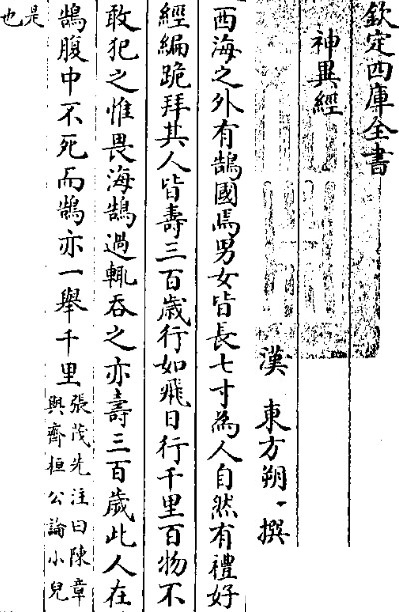 欽定四庫全書
神異經
漢 東方朔 撰
西海之外有鵠國焉男女皆長七寸為人自然有禮好
經編跪拜其人皆壽三百歲行如飛日行千里百物不
敢犯之惟畏海鵠過輒吞之亦壽三百歲此人在
鵠腹中不死而鵠亦一舉千里張茂先注曰陳章
與齊桓公論小兒
是
也